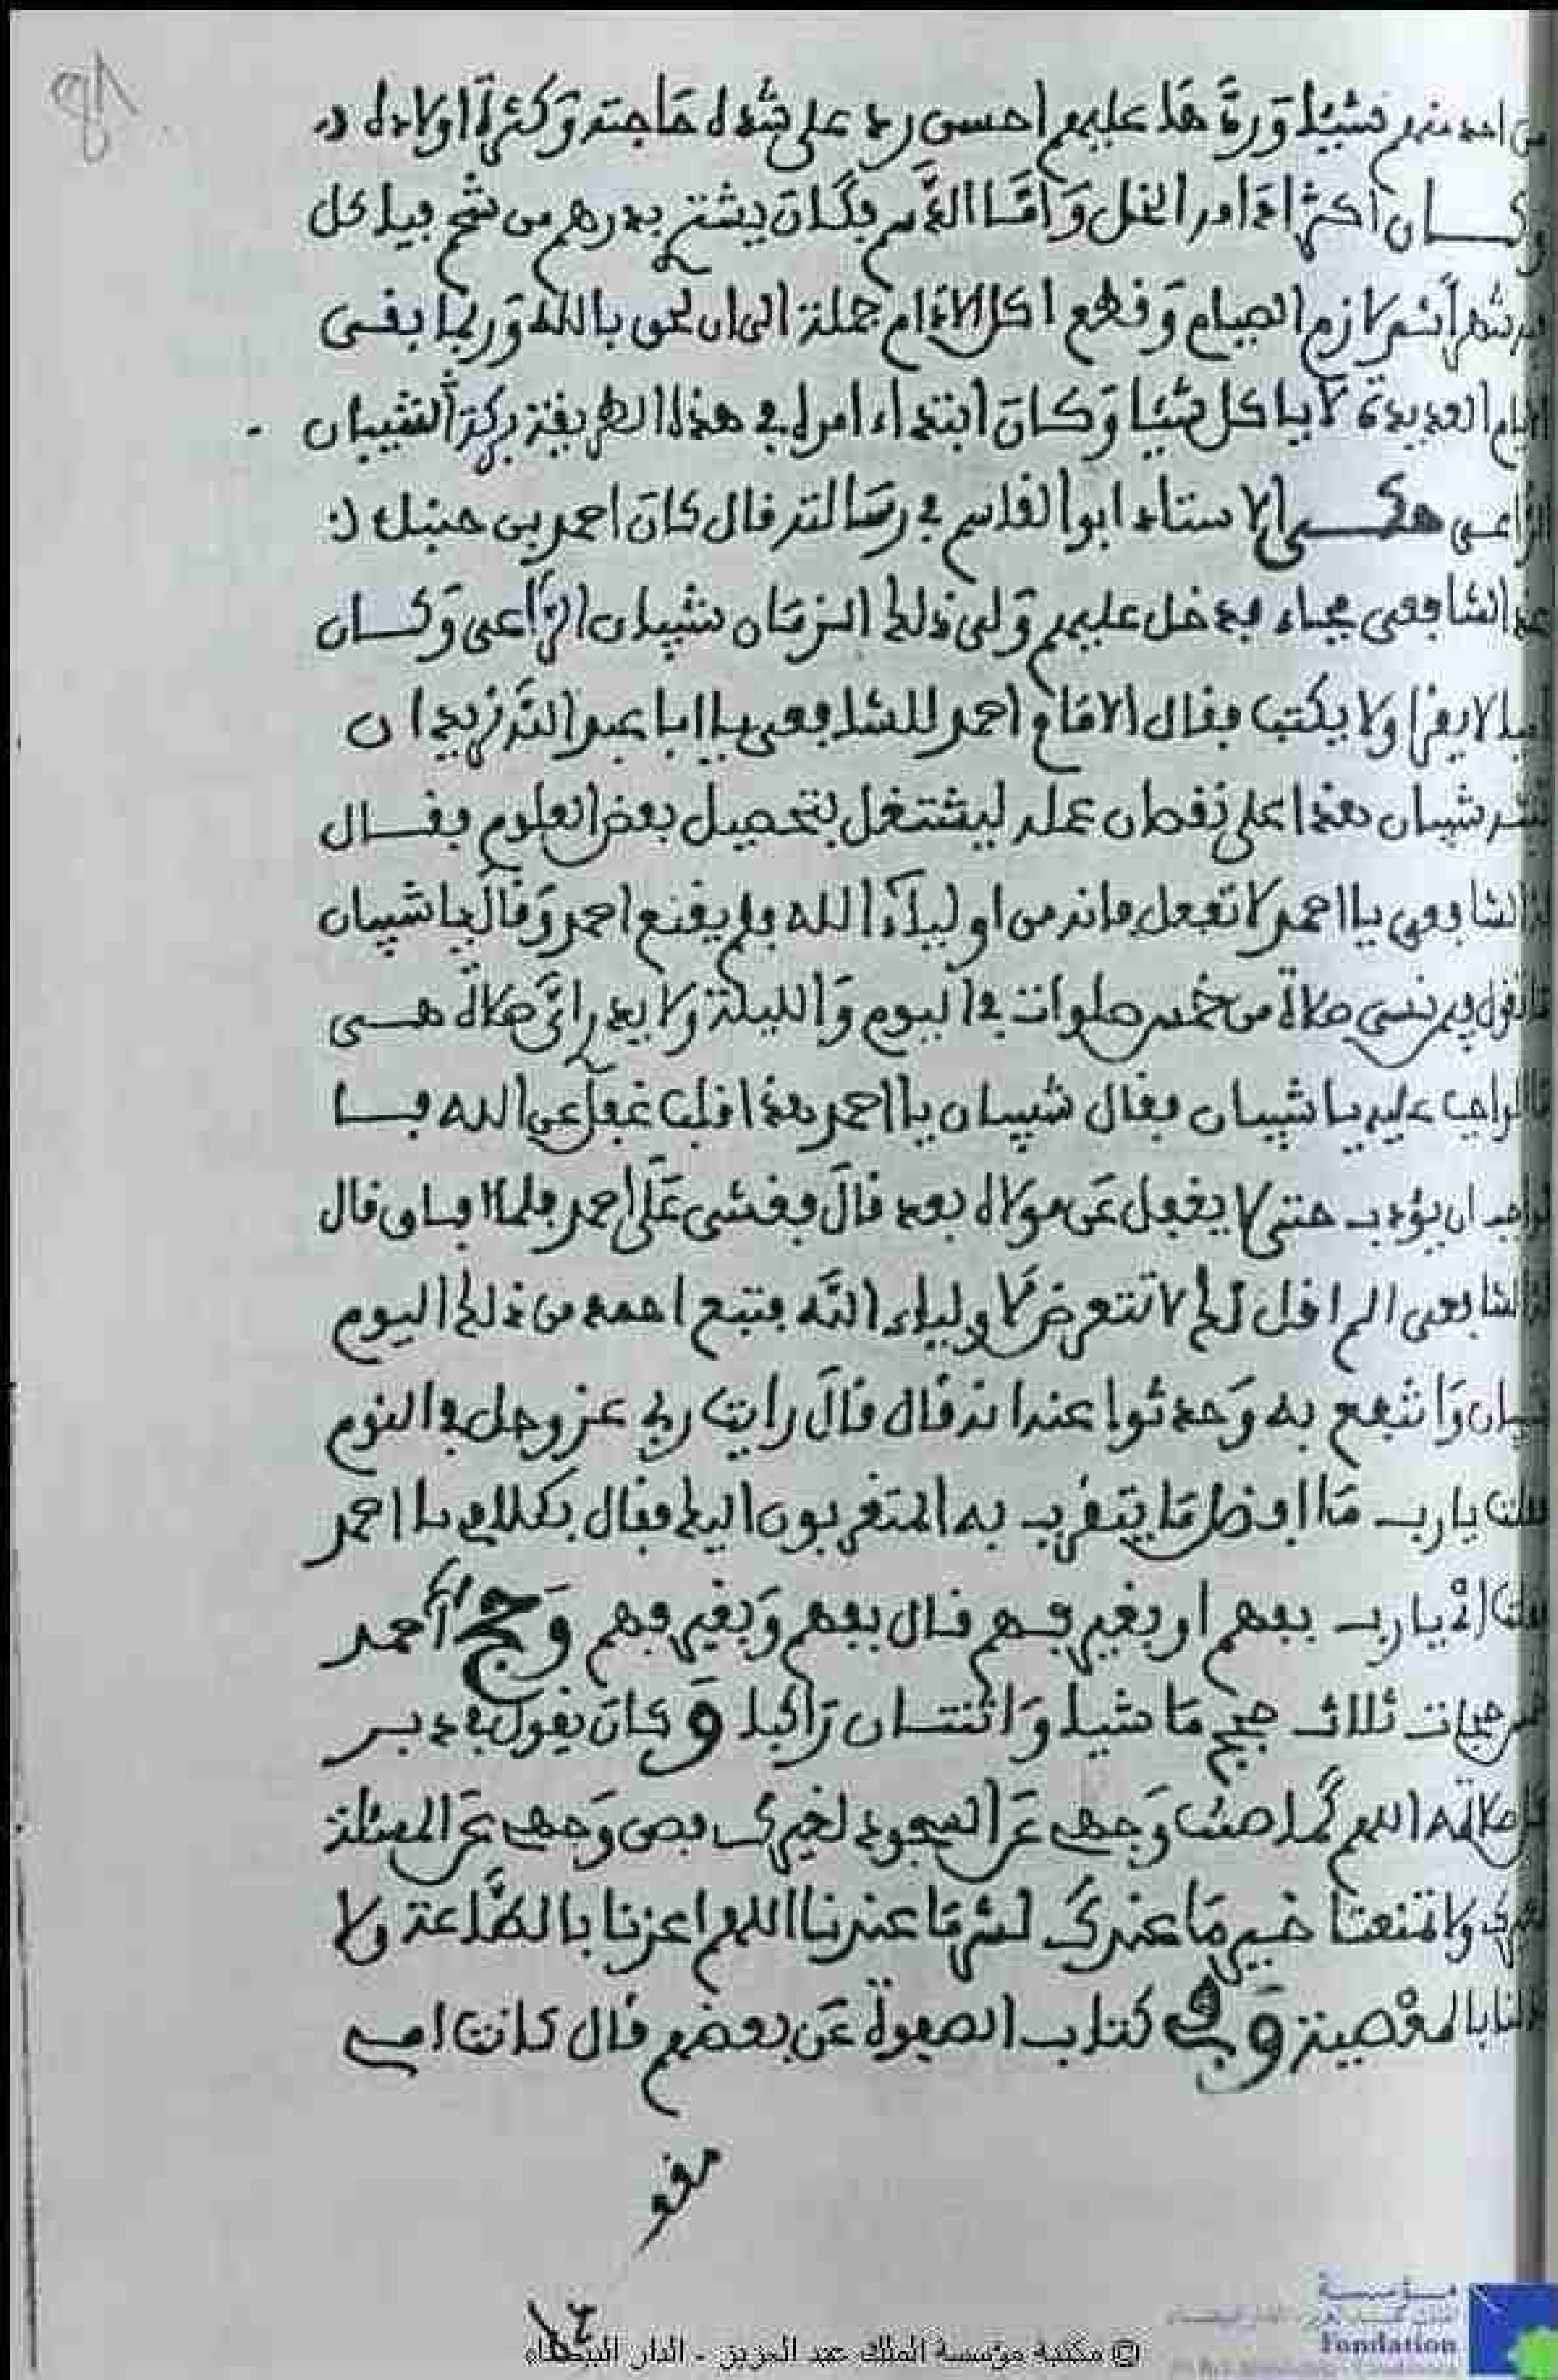 احد منهم شيئا وردها عليهم احسن رد على شدة حاجته وكثرة اولاده
وكان اكثر ادامه الخل واما الدسم فكان يشتري بدرهم شحم فياكل
منه شهرا ثم لازم الصيام وقطع اكل الادام جملة الى ان لحق بالله وربما بقى
الايام العديدة لا ياكل شيئا وكان ابتداء امره في هذه الطريقة بركة الشيبان
الراعى حكى الاستاذ ابو القاسم في رسالته قال كان احمد بن حنبل
عند الشافعى فجاء فدخل عليهم ولى ذلك الزمان شيبان الراعى وكان
اميا لا يقرا ولا يكتب فقال الامام احمد للشافعى يا ابا عبد الله نريد ان
ننبه شيبان هذا على نقصان علمه ليشتغل بتحصيل بعض العلوم فقال
له الشافعى يا احمد لا تفعل فانه من اولياء الله فلم يقنع احمد وقال يا شيبان
ما تقول فيمن نسى صلاة من خمس صلوات في اليوم والليلة ولا يدر اي صلاة هى
ما الواجب عليه يا شيبان فقال شيبان يا احمد هذا قلب غفل عن الله فا
لواجب ان يؤدب حتى لا يغفل عن مولاه بعد قال فغشى على احمد فلما افاق قال
له الشافعى الم اقل لك لا تتعرض لاولياء الله فتبع احمد من ذلك اليوم
شيبان وانتفع به وحدثوا عنه انه قال قال رايت ربى عز وجل في النوم
فقلت يا رب ما افضل ما يتقرب به المتقربون اليك فقال بكلامى يا احمد
فقلت له يا رب بفهم او بغير فهم قال بفهم وبغير فهم وحج احمد
خمس حجات ثلاث حجج ماشيا واثنتان راكبا وكان يقول بعد دبر
كل صلاته اللهم كما صنت وجهى عن السجود لغيرك فصن وجهى عن المسئلة
لغيرك ولا تمنعنا خير ما عندك لشر ما عندنا اللهم اعزنا بالطاعة ولا
تذلنا بالمعصية وفي كتاب الصفوة عن بعضهم قال كانت امى
مقع
© مكتبة مؤسسة الملك عبد العزيز - الدار البيضاء
مؤسسة
Fondation